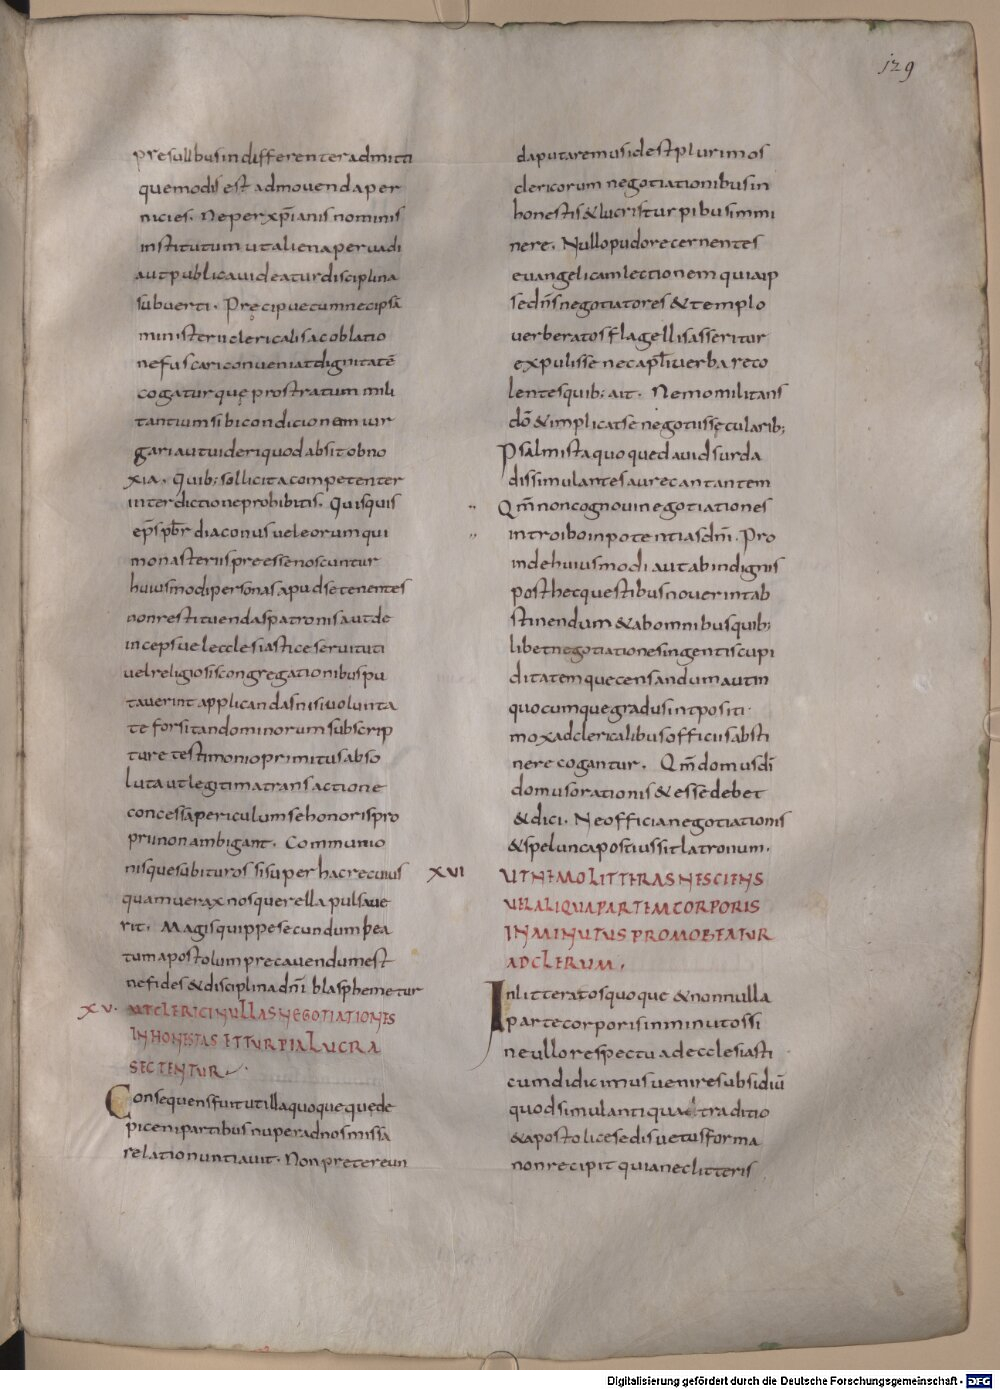 129
presulibus indifferenter admitti
quemodis est admouenda per
nicies. Ne per xp̄ianis nominis
institutum ut aliena peruadi
aut publica uideatur disciplina
subuerti. Precipue cum nec ipsā
ministerii clericalis ac oblatio
ne fuscari conueniat dignitatē
cogaturque prostratum mili
tantium sibi condicionem iur
gari aut uideri quod absit obno
xia. Quib; sollicita competenter
interdictione prohibitis. Quisquis
ep̄s pbr̄ diaconus uel eorum qui
monasteriis preesse noscuntur
huiusmodi personas apud se tenentes
non restituendas patronis aut de
inceps uel ecclesiastice seruituti
uel religiosis congregationibus pu
tauerint applicandas nisi uolunta
te forsitan dominorum subscrip
ture testimonio primitus abso
luta ut legitima transactione
concessa periculum se honoris pro
prii non ambigant. Communio
nisque subituros si super hac re cuius
quam uerax nos querella pulsaue
rit. Magis quippe secundum bea
tum apostolum precauendum est
ne fides & disciplina dn̄i blasphemetur
XV. UT CLERICI NULLAS NEGOTIATIONES
INHONESTAS ET TURPIA LUCRA
SECTENTUR
Consequens fuit ut illa quoque que de
piceni partibus nuper ad nos missa
relatio nuntiauit. Non pretereun
da putaremus id est plurimos
clericorum negotiationibus in
honestis & lucris turpibus immi
nere. Nullo pudore cernentes
euangelicam lectionem quia ip
se dn̄s negotiatores & templo
uerberatos flagellis asseritur
expulisse nec apl̄i uerba reco
lentes quib; ait. Nemo militans
dō & implicat se negotus secularib;
Psalmista quoque dauid surda
dissimulantes aure cantantem
Qm̄ non cognoui negotiationes
introibo in potentias dn̄i. Pro
inde huiusmodi aut ab indignis
post hec questibus nouerint ab
stinendum & ab omnibus quib;
libet negotiationes ingentis cupi
ditatem que censandum aut in
quocumque gradu sint positi
mox ad clericalibus officiis absti
nere cogantur. Qm̄ domus dī
domus orationis & esse debet
& dici. Ne officia negotiationis
& spelunca potius sit latronum.
XVI UT NEMO LITTERAS NESCIENS
VEL ALIQUA PARTEM CORPORIS
INMINUTUS PROMOBEATUR
AD CLERUM.
Inlitteratos quoque & nonnulla
parte corporis inminutos si
ne ullo respectu ad ecclesiasti
cum didicimus uenire subsidiū
quod simul antiqua traditio
& apostolice sedis uetus forma
non recipit quia nec litteris
Digitalisierung gefördert durch die Deutsche Forschungsgemeinschaft - DFG